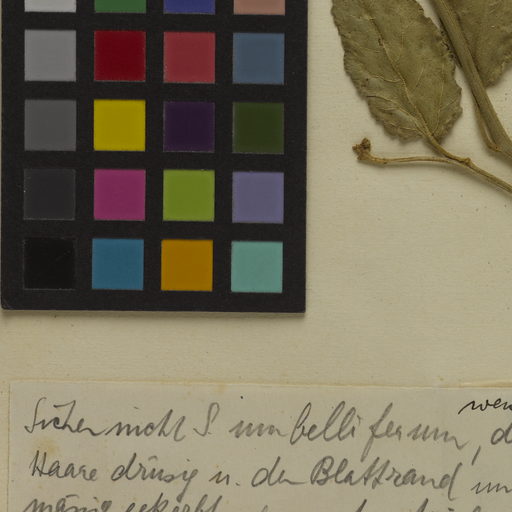 wen
Sicher nicht S. umbelliferum, d
Haare drüsig u. der Blattrand un
mässig gekerbt